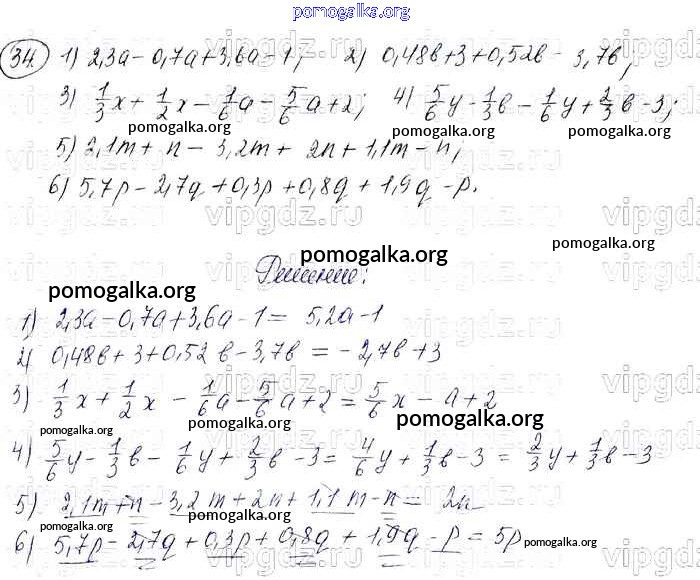 pomogalka.org
34. 1) 2,3a - 0,7a + 3,6a - 1; 2) 0,48в + 3 + 0,52в - 3,7в;
3) 1/3 x + 1/2 x - 1/6 a - 5/6 a + 2; 4) 5/6 y - 1/3 в - 1/6 y + 2/3 в - 3;
pomogalka.org pomogalka.org
5) 2,1m + n - 3,2m + 2n + 1,1m - n;
6) 5,7p - 2,7q + 0,3p + 0,8q + 1,9q - p.
vipgdz.ru
pomogalka.org
Решение:
pomogalka.org
pomogalka.org
1) 2,3a - 0,7a + 3,6a - 1 = 5,2a - 1
2) 0,48в + 3 + 0,52в - 3,7в = -2,7в + 3
3) 1/3 x + 1/2 x - 1/6 a - 5/6 a + 2 = 5/6 x - a + 2
pomogalka.org
pomogalka.org
4) 5/6 y - 1/3 в - 1/6 y + 2/3 в - 3 = 4/6 y + 1/3 в - 3 = 2/3 y + 1/3 в - 3
pomogalka.org
5) 2,1m + n - 3,2m + 2n + 1,1m - n = 2n
pomogalka.org pomogalka.org
6) 5,7p - 2,7q + 0,3p + 0,8q + 1,9q - p = 5p
pomogalka.org